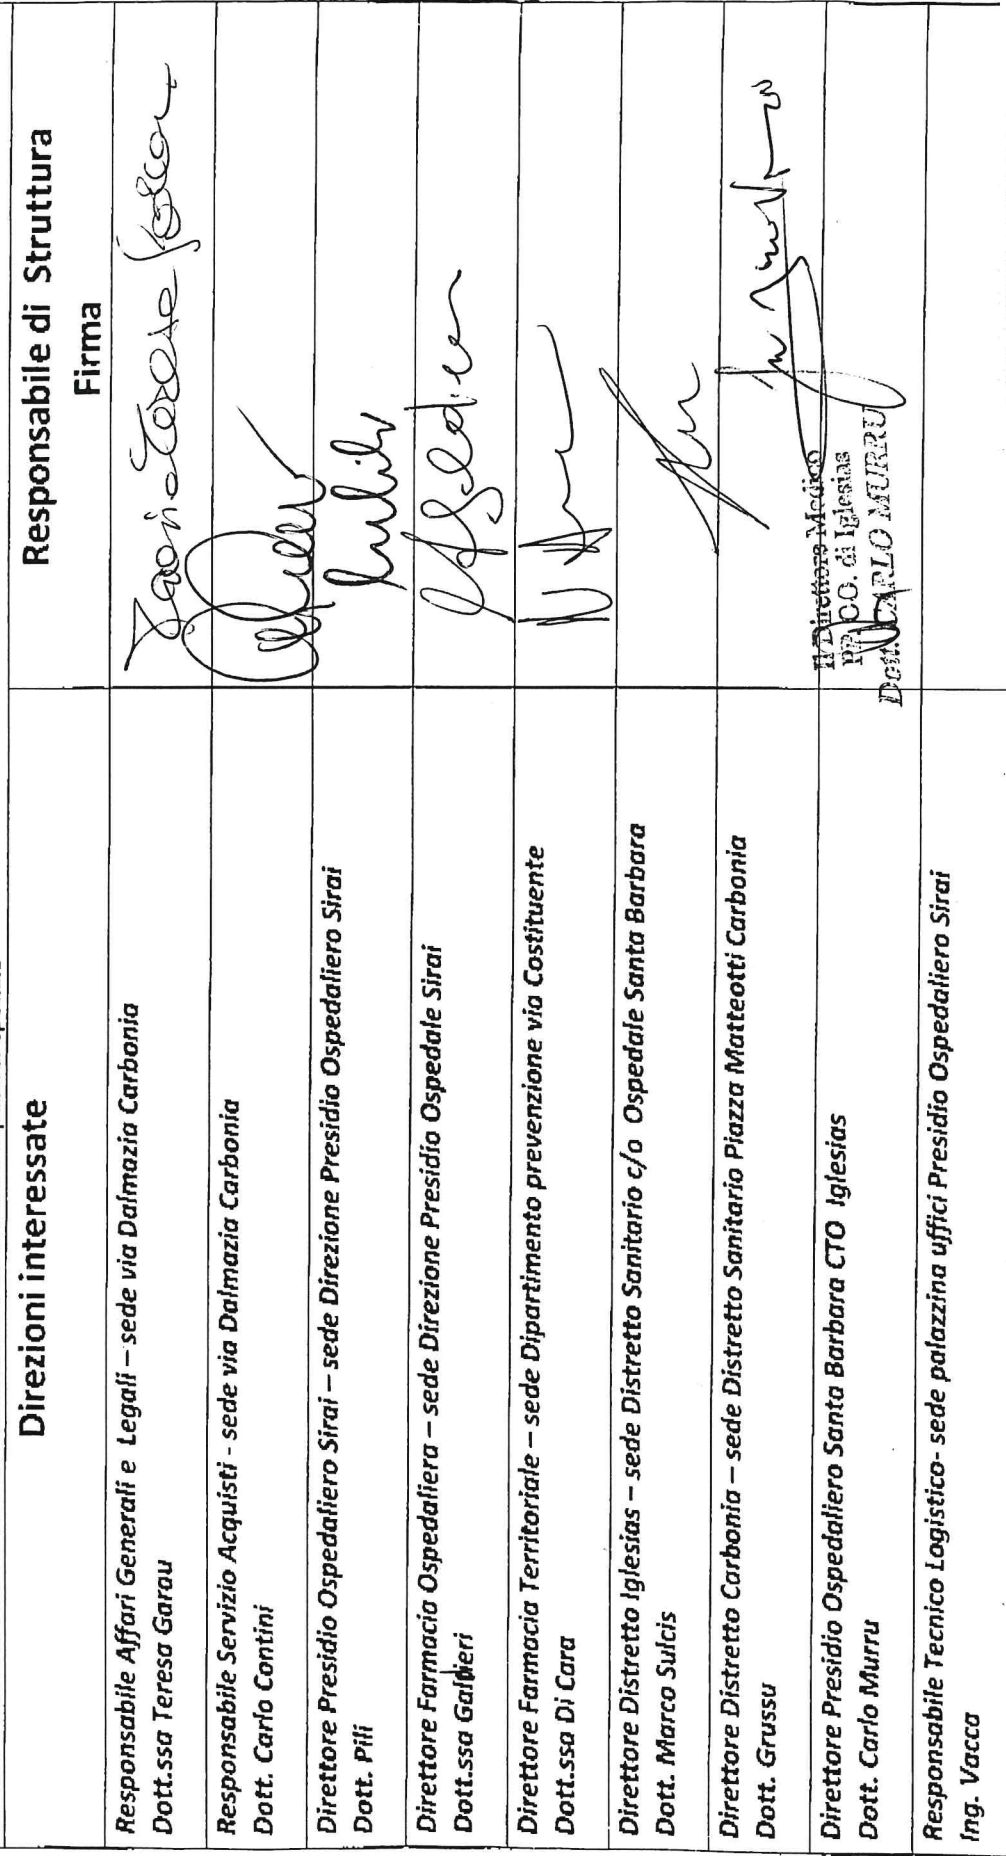 Direzioni interessate
Responsabile di Struttura
Firma
Responsabile Affari Generali e Legali – sede via Dalmazia Carbonia
Dott.ssa Teresa Garau
Responsabile Servizio Acquisti - sede via Dalmazia Carbonia
Dott. Carlo Contini
Direttore Presidio Ospedaliero Sirai – sede Direzione Presidio Ospedaliero Sirai
Dott. Pili
Direttore Farmacia Ospedaliera – sede Direzione Presidio Ospedale Sirai
Dott.ssa Galfieri
Direttore Farmacia Territoriale – sede Dipartimento prevenzione via Costituente
Dott.ssa Di Cara
Direttore Distretto Iglesias – sede Distretto Sanitario c/o Ospedale Santa Barbara
Dott. Marco Sulcis
Direttore Distretto Carbonia – sede Distretto Sanitario Piazza Matteotti Carbonia
Dott. Grussu
Direttore Presidio Ospedaliero Santa Barbara CTO Iglesias
Dott. Carlo Murru
Il Direttore Medico
PP.OO. di Iglesias
Dott. CARLO MURRU
Responsabile Tecnico Logistico- sede palazzina uffici Presidio Ospedaliero Sirai
Ing. Vacca